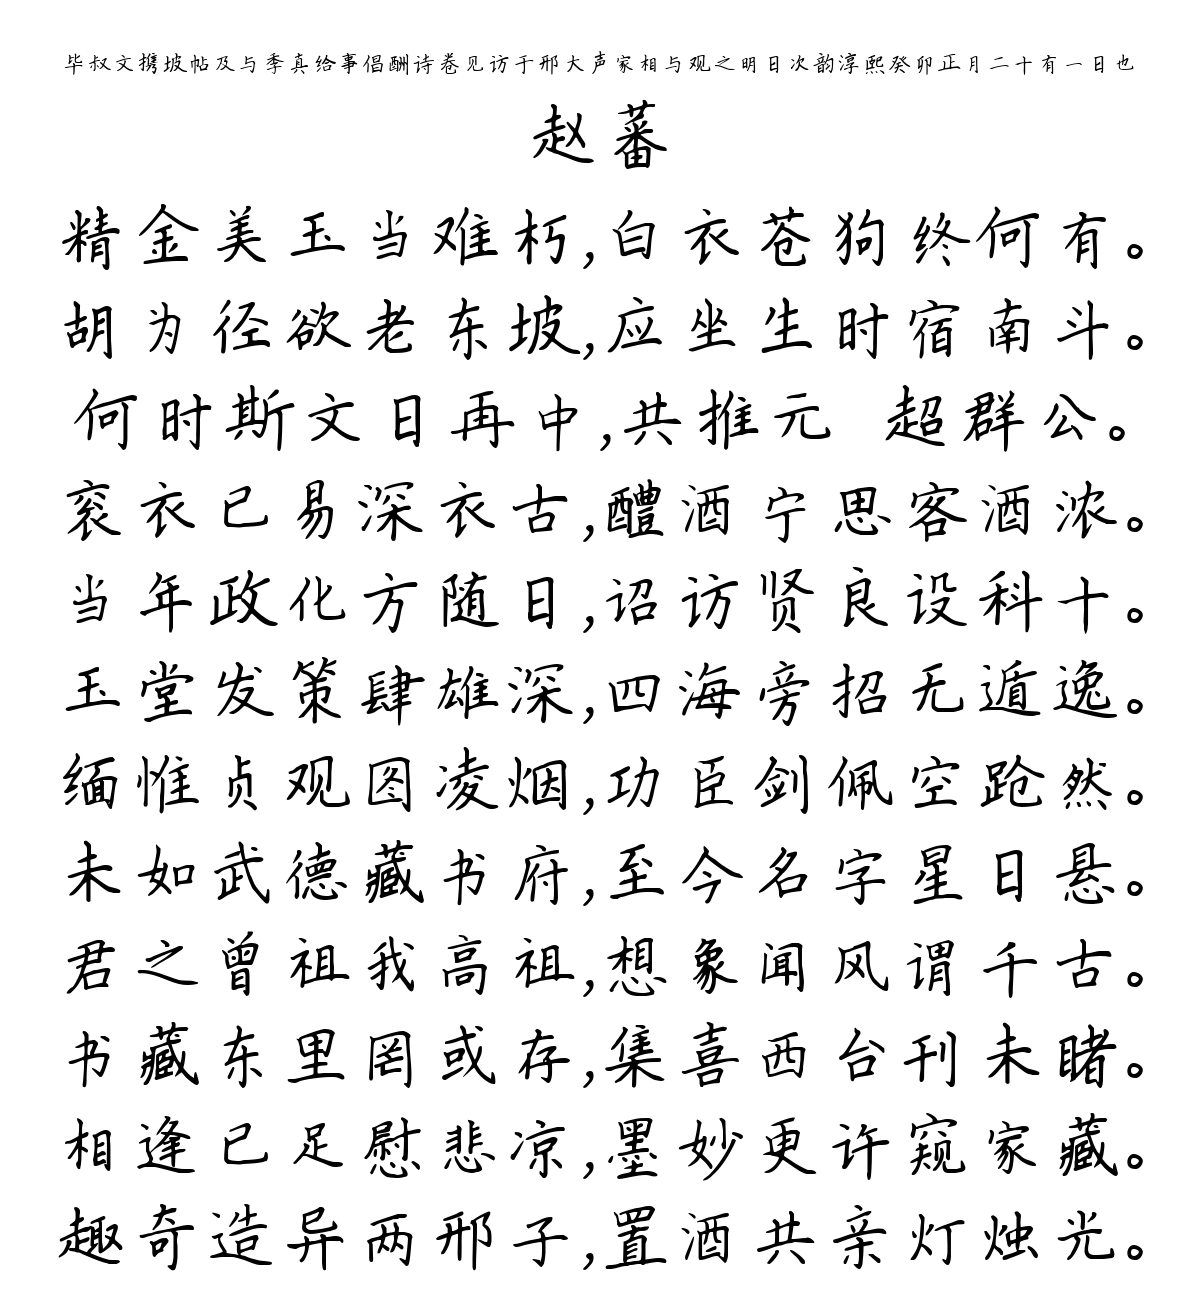 毕叔文携坡帖及与季真给事倡酬诗卷见访于邢大声家相与观之明日次韵淳熙癸卯正月二十有一日也
赵蕃
精金美玉当难朽,白衣苍狗终何有。
胡为径欲老东坡,应坐生时宿南斗。
何时斯文日再中,共推元 超群公。
衮衣已易深衣古,醴酒宁思客酒浓。
当年政化方随日,诏访贤良设科十。
玉堂发策肆雄深,四海旁招无遁逸。
缅惟贞观图凌烟,功臣剑佩空跄然。
未如武德藏书府,至今名字星日悬。
君之曾祖我高祖,想象闻风谓千古。
书藏东里罔或存,集喜西台刊未睹。
相逢已足慰悲凉,墨妙更许窥家藏。
趣奇造异两邢子,置酒共亲灯烛光。